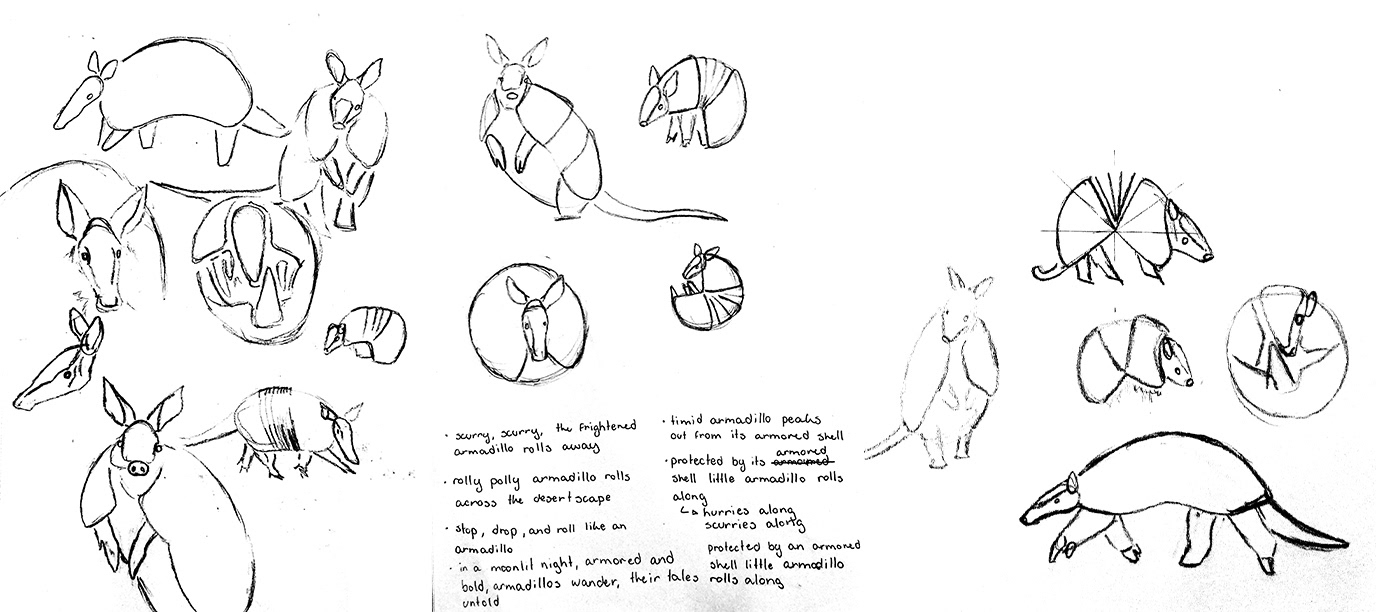 · scurry, scurry, the frightened
armadillo rolls away
· rolly polly armadillo rolls
across the desertscape
· stop, drop, and roll like an
armadillo
· in a moonlit night, armored and
bold, armadillos wander, their tales
untold
· timid armadillo peaks
out from its armored shell
armored
· protected by its
shell little armadillo rolls
along
↳ hurries along
scurries along
protected by an armored
shell little armadillo
rolls along